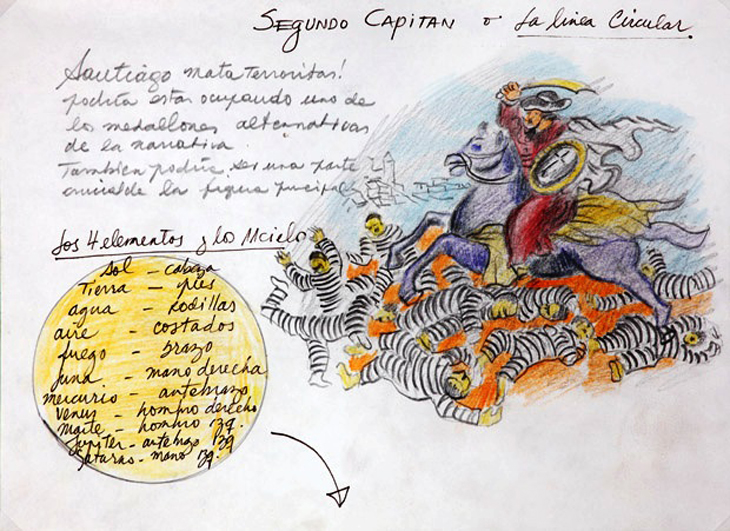 SEGUNDO CAPITAN o La linea Circular.
Santiago mata terroritas!
podria estar ocupando uno de
los medallones alternativas
de la narrativa.
Tambien podria ser una parte
crucial de la figura
Los 4 elementos y los
Sol - cabeza
Tierra - pies
agua - Rodillas
aire - costados
fuego - brazo
Luna - mano derecha
mercurio - antebrazo
Venus - hombro derecho
Marte - hombro izq.
Jupiter - antebazo izq
Saturno - mano izq.